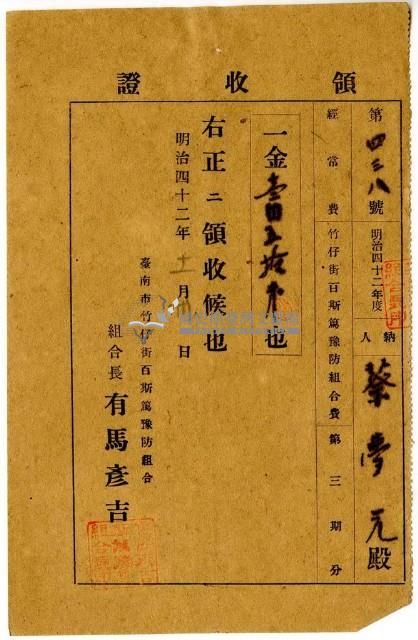 領收證
第四三八號 明治四十二年度 納人 蔡夢元殿
經常費 竹仔街百斯篤豫防組合費 第三期分
一金壹圓五拾錢也
右正ニ領收候也
明治四十二年十一月 日
臺南市竹仔街百斯篤豫防組合
組合長 有馬彥吉